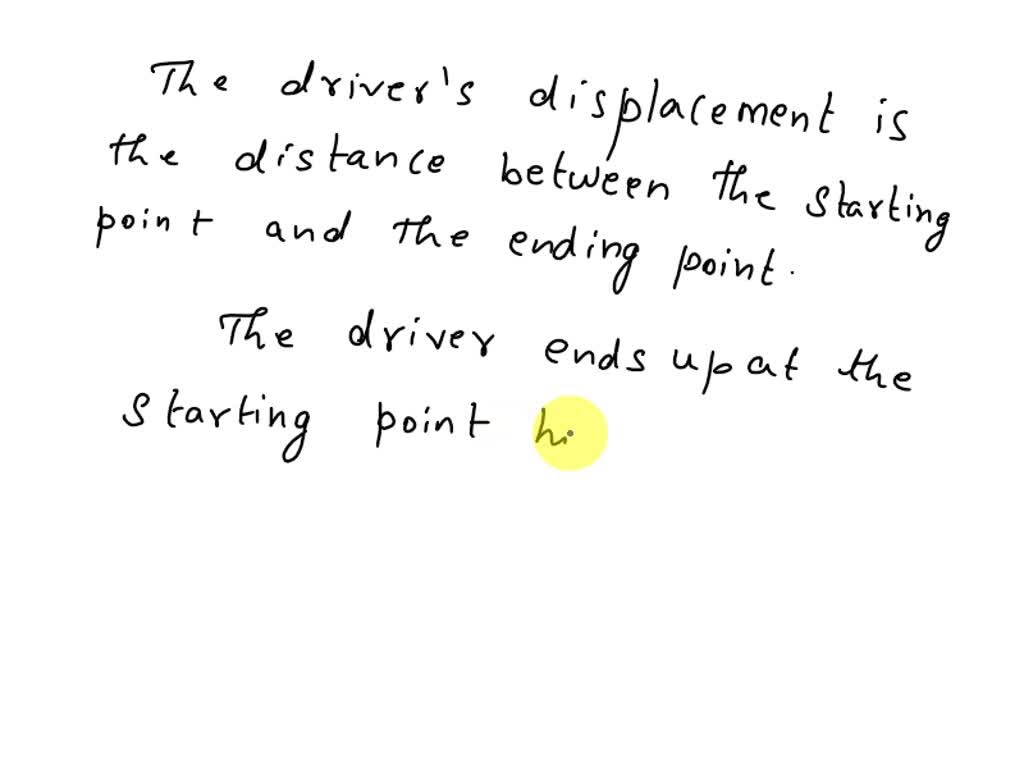 The driver's displacement is
the distance between the starting
point and the ending point.
The driver ends up at the
starting point hi